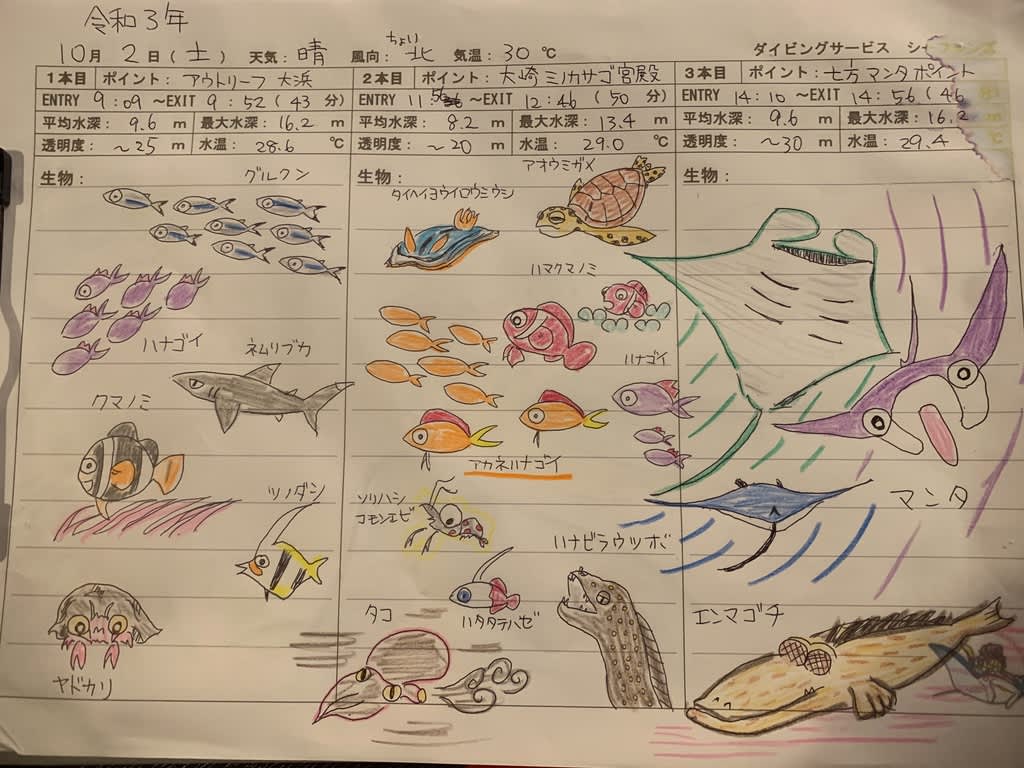 令和3年
10月 2日(土) 天気: 晴 風向: ちょい北 気温: 30 ℃ ダイビングサービス
1本目 ポイント: アウトリーフ 大浜
ENTRY 9:09 ~EXIT 9:52 (43 分)
平均水深: 9.6 m 最大水深: 16.2 m
透明度: ~25 m 水温: 28.6 ℃
生物:
グルクン
ハナゴイ
ネムリブカ
クマノミ
ツノダシ
ヤドカリ
2本目 ポイント: 大崎 ミノカサゴ宮殿
ENTRY 11 56 ~EXIT 12:46 (50 分)
平均水深: 8.2 m 最大水深: 13.4 m
透明度: ~20 m 水温: 29.0 ℃
生物:
アオウミガメ
タイヘイヨウイロウミウシ
ハマクマノミ
ハナゴイ
アカネハナゴイ
ソリハシ
コモンエビ
ハナビラウツボ
ハタタテハゼ
タコ
3本目 ポイント: 七方 マンタポイント
ENTRY 14:10 ~EXIT 14:56 (46
平均水深: 9.6 m 最大水深: 16.2 m
透明度: ~30 m 水温: 29.4 ℃
生物:
マンタ
エンマゴチ